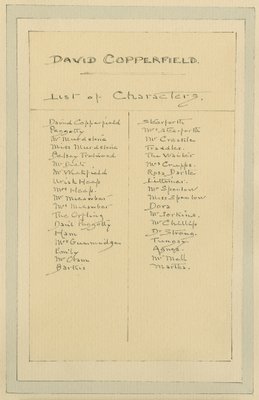 DAVID COPPERFIELD.
List of Characters.
David Copperfield
Peggotty
Mr Murdstone
Miss Murdstone
Betsey Trotwood
Mr Dick
Mr Wickfield
Uriah Heep
Mrs Heep.
Mr Micawber
Mrs Micawber
The Orfling
Danl Peggotty
Ham
Mrs Gummidge
Emily
Mr Omer
Barkis
Steerforth
Mrs Steerforth
Mr Creakle
Traddles.
The Waiter
Mrs Crupps.
Rosa Dartle
Littimer.
Mr Spenlow
Miss Spenlow
Dora
Mr Jorkins.
Mr Chillip
Dr Strong.
Tungay
Agnes.
Mr Mell
Martha.